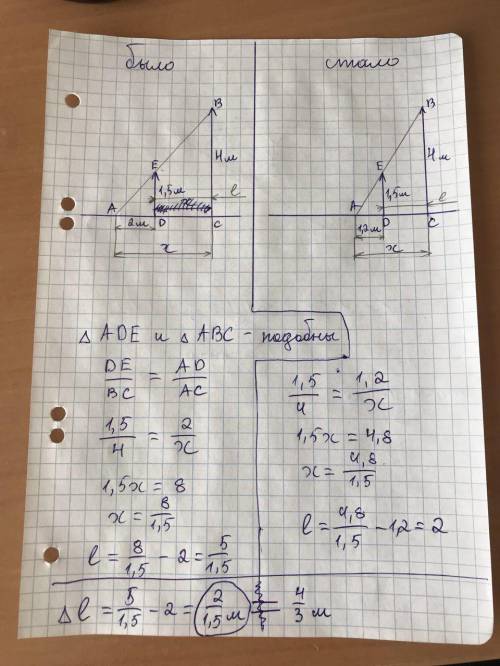 было
стало
B
E
4м
1,5м
l
A
2м
D
C
x
B
E
4м
1,5м
l
A
1,2м
D
C
x
△ ADE и △ ABC - подобны
DE/BC = AD/AC
1,5/4 = 2/x
1,5x = 8
x = 8/1,5
l = 8/1,5 - 2 = 5/1,5
1,5/4 = 1,2/x
1,5x = 4,8
x = 4,8/1,5
l = 4,8/1,5 - 1,2 = 2
△l = 5/1,5 - 2 = 2/1,5 м = 4/3 м